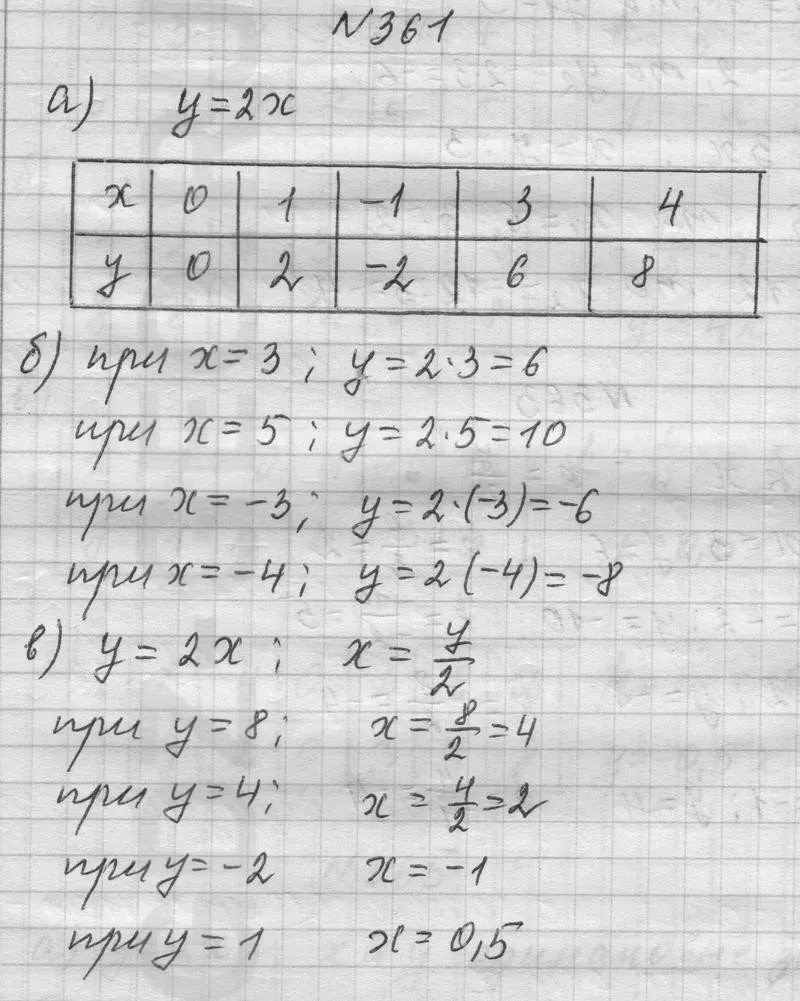 N361
а) y=2x
x 0 1 -1 3 4
y 0 2 -2 6 8
б) при x=3; y=2·3=6
при x=5; y=2·5=10
при x=-3; y=2·(-3)=-6
при x=-4; y=2(-4)=-8
в) y=2x; x=y/2
при y=8; x=8/2=4
при y=4; x=4/2=2
при y=-2 x=-1
при y=1 x=0,5